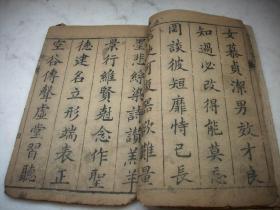 女慕貞潔男效才良
知過必改得能莫忘
罔談彼短靡恃己長
可覆器欲難量
墨悲絲染詩讚羔羊
景行維賢尅念作聖
德建名立形端表正
空谷傳聲虛堂習聽